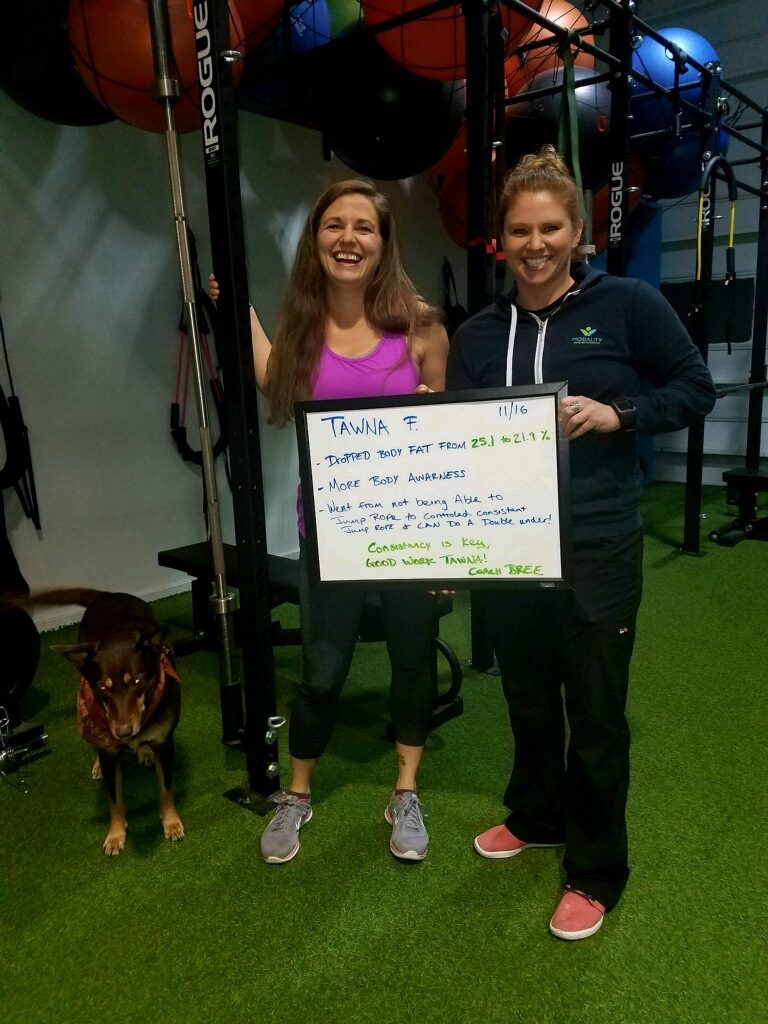 ROGUE
ROGUE
MODALITY
TAWNA F. 11/16
- DROPPED BODY FAT FROM 25.1 to 21.9 %
- MORE BODY AWARNESS
- Went from not being Able to
Jump ROPE to Controled consistant
Jump ROPE & CAN DO A Double under!
Consistancy is Key,
GOOD WORK TAWNA!
COACH BREE